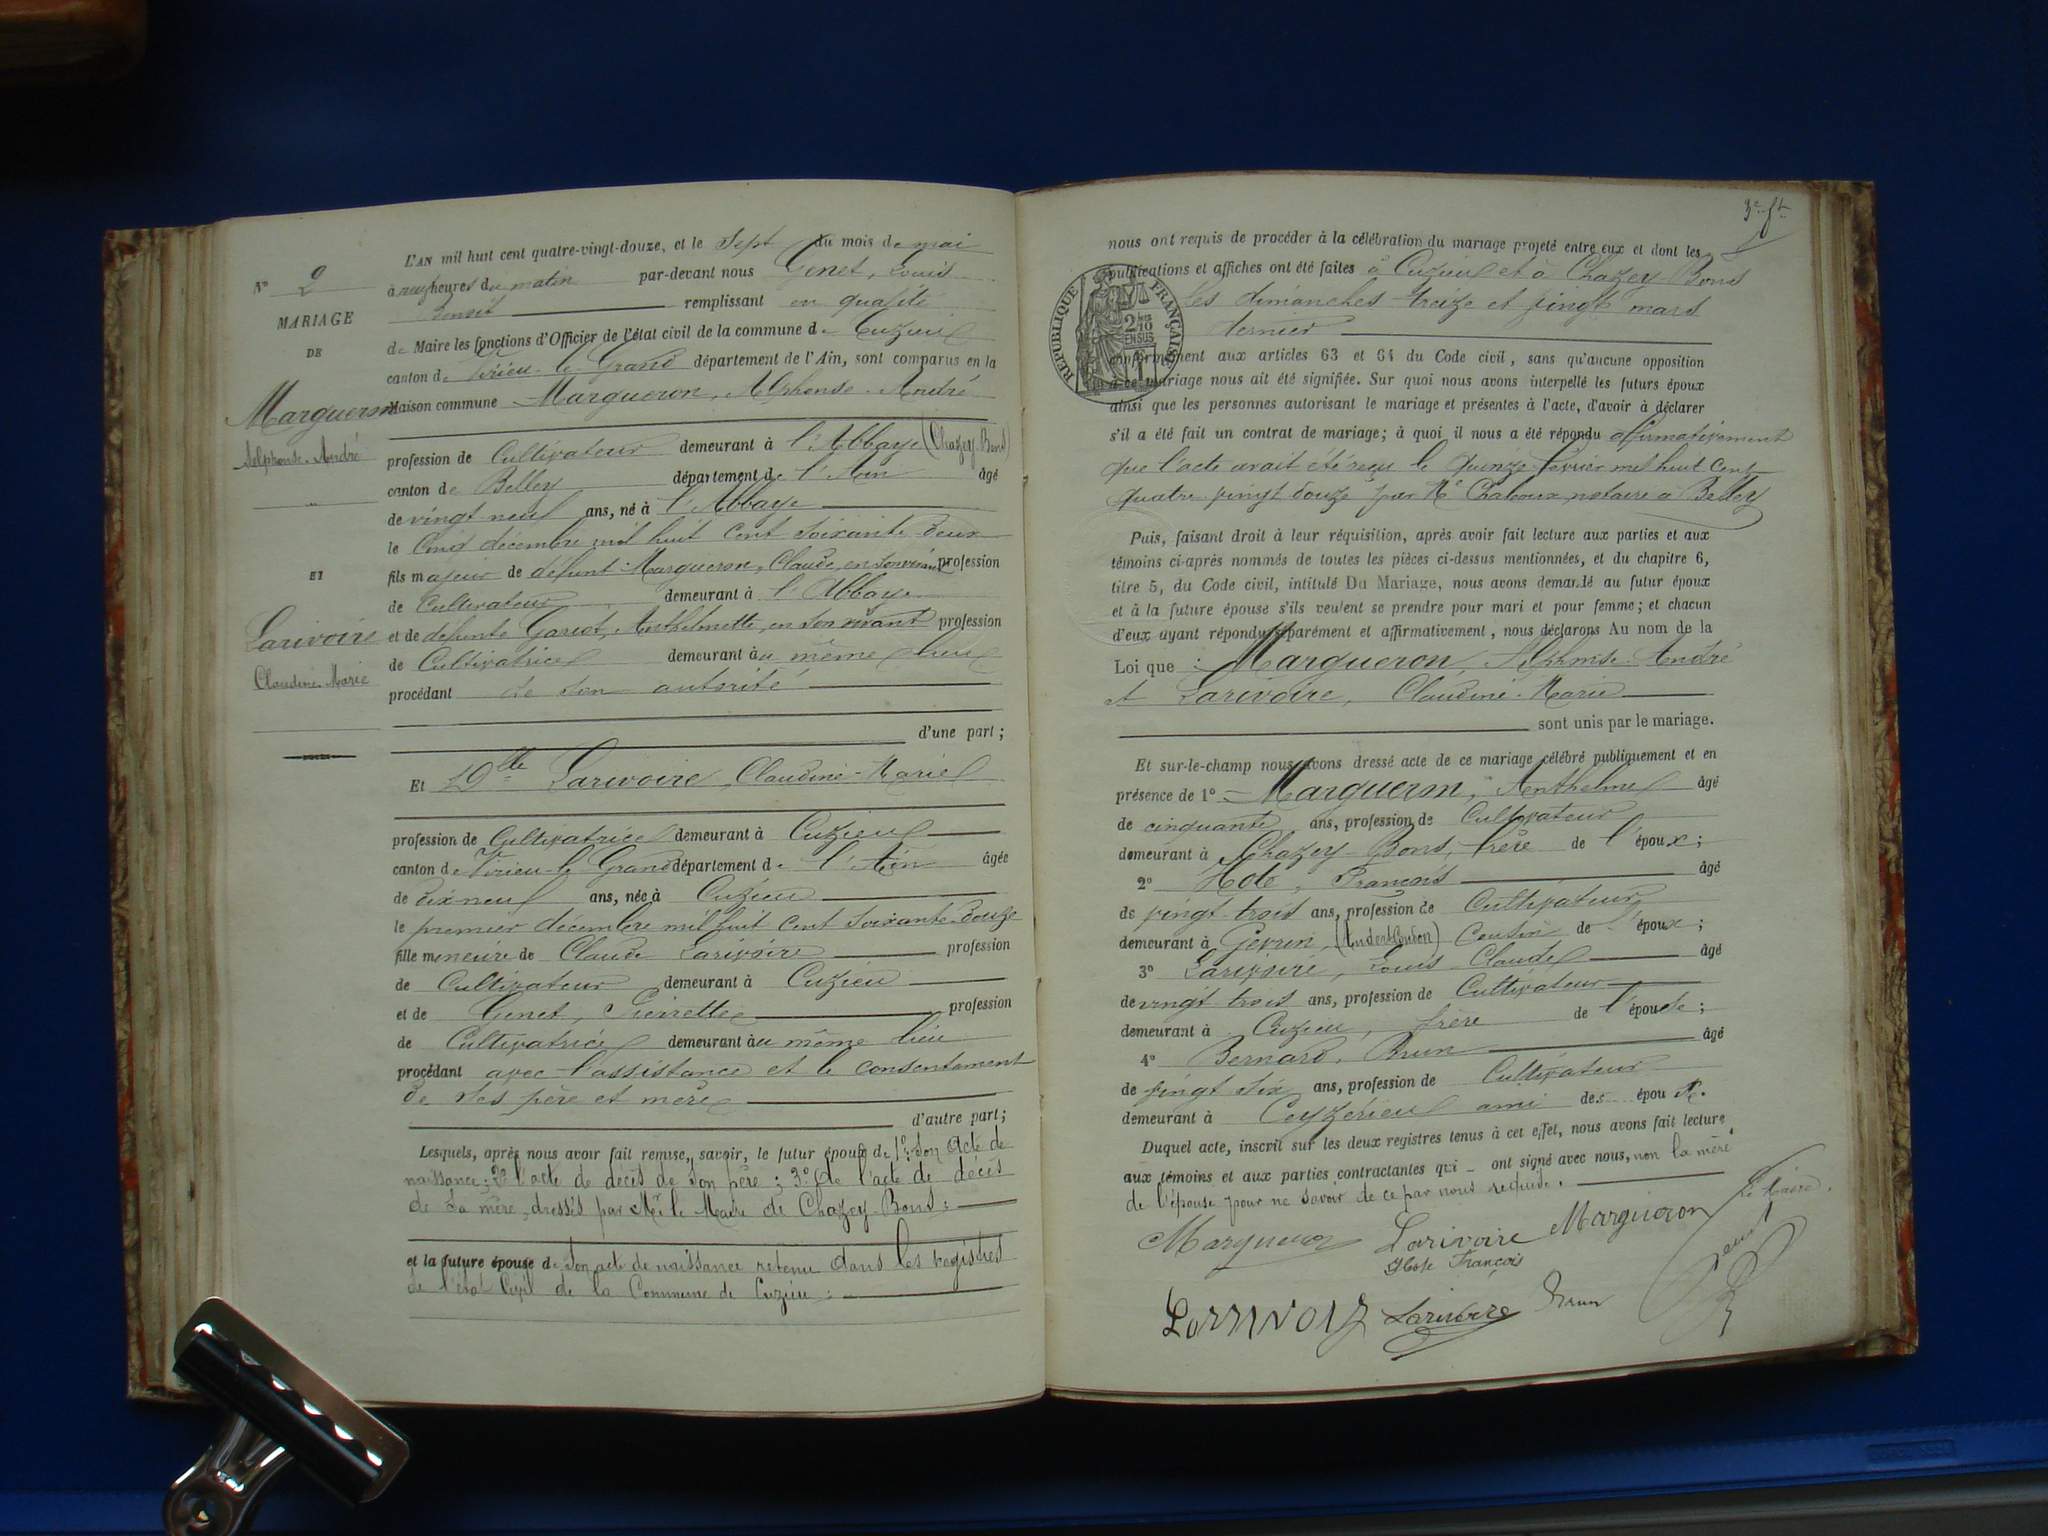 L'AN mil huit cent quatre-vingt-douze, et le Sept du mois de mai
N° 2
à neuf heures du matin par-devant nous Genet, Louis
Benoît remplissant en qualité
MARIAGE
de Maire les fonctions d'Officier de l'état civil de la commune de Cuzieu
DE
canton de Virieu-le-Grand département de l'Ain, sont comparus en la
Margueron
Maison commune Margueron, Alphonse-André
Alphonse-André
profession de Cultivateur demeurant à l'Abbaye (Chazey-Bons)
canton de Belley département de l'Ain âgé
de vingt neuf ans, né à l'Abbaye
le Cinq décembre mil huit cent soixante-deux
ET
fils majeur de défunt Margueron, Claude, en son vivant profession
de Cultivateur demeurant à l'Abbaye
Larivoire
et de défunte Gariot, Anthelmette, en son vivant profession
de Cultivatrice demeurant au même lieu
Claudine-Marie
procédant de son autorité
d'une part ;
Et Dlle Larivoire, Claudine-Marie
profession de Cultivatrice demeurant à Cuzieu
canton de Virieu-le-Grand département de l'Ain âgée
de dix neuf ans, née à Cuzieu
le premier décembre mil huit cent soixante-douze
fille mineure de Claude Larivoire profession
de Cultivateur demeurant à Cuzieu
et de Genet, Pierrette profession
de Cultivatrice demeurant au même lieu
procédant avec l'assistance et le consentement
de ses père et mère
d'autre part ;
Lesquels, après nous avoir fait remise, savoir, le futur époux de 1° son acte de
naissance ; 2° l'acte de décès de son père ; 3° de l'acte de décès
de sa mère, dressés par Mr le Maire de Chazey-Bons ;
et la future épouse de son acte de naissance retenu dans les registres
de l'état Civil de la Commune de Cuzieu ;
3e ft
nous ont requis de procéder à la célébration du mariage projeté entre eux et dont les
publications et affiches ont été faites à Cuzieu et à Chazey Bons
les dimanches treize et vingt mars
dernier
RÉPUBLIQUE FRANÇAISE
2/10 EN SUS
conformément aux articles 63 et 64 du Code civil, sans qu'aucune opposition
à ce mariage nous ait été signifiée. Sur quoi nous avons interpellé les futurs époux
ainsi que les personnes autorisant le mariage et présentes à l'acte, d'avoir à déclarer
s'il a été fait un contrat de mariage ; à quoi il nous a été répondu affirmativement
que l'acte avait été reçu le quinze février mil huit cent
quatre vingt douze par Me notaire à Belley
Puis, faisant droit à leur réquisition, après avoir fait lecture aux parties et aux
témoins ci-après nommés de toutes les pièces ci-dessus mentionnées, et du chapitre 6,
titre 5, du Code civil, intitulé Du Mariage, nous avons demandé au futur époux
et à la future épouse s'ils veulent se prendre pour mari et pour femme ; et chacun
d'eux ayant répondu séparément et affirmativement, nous déclarons Au nom de la
Loi que : Margueron, Alphonse-André
et Larivoire, Claudine-Marie
sont unis par le mariage.
Et sur-le-champ nous avons dressé acte de ce mariage célébré publiquement et en
présence de 1° Margueron, Anthelme âgé
de cinquante ans, profession de Cultivateur
demeurant à Chazey-Bons, frère de l'époux ;
2° Hote, François âgé
de vingt-trois ans, profession de Cultivateur
demeurant à Gevrin, (Andert-Condon) Cousin de l'époux ;
3° Larivoire, Louis-Claude âgé
de vingt trois ans, profession de Cultivateur
demeurant à Cuzieu, frère de l'épouse ;
4° Bernard, Brun âgé
de vingt six ans, profession de Cultivateur
demeurant à Ceyzérieu ami des époux.
Duquel acte, inscrit sur les deux registres tenus à cet effet, nous avons fait lecture
aux témoins et aux parties contractantes qui ont signé avec nous, non la mère
de l'épouse pour ne savoir de ce par nous requise.
Le Maire.
Margueron Larivoire Margueron
Hote François Genet
Larivoire Brun